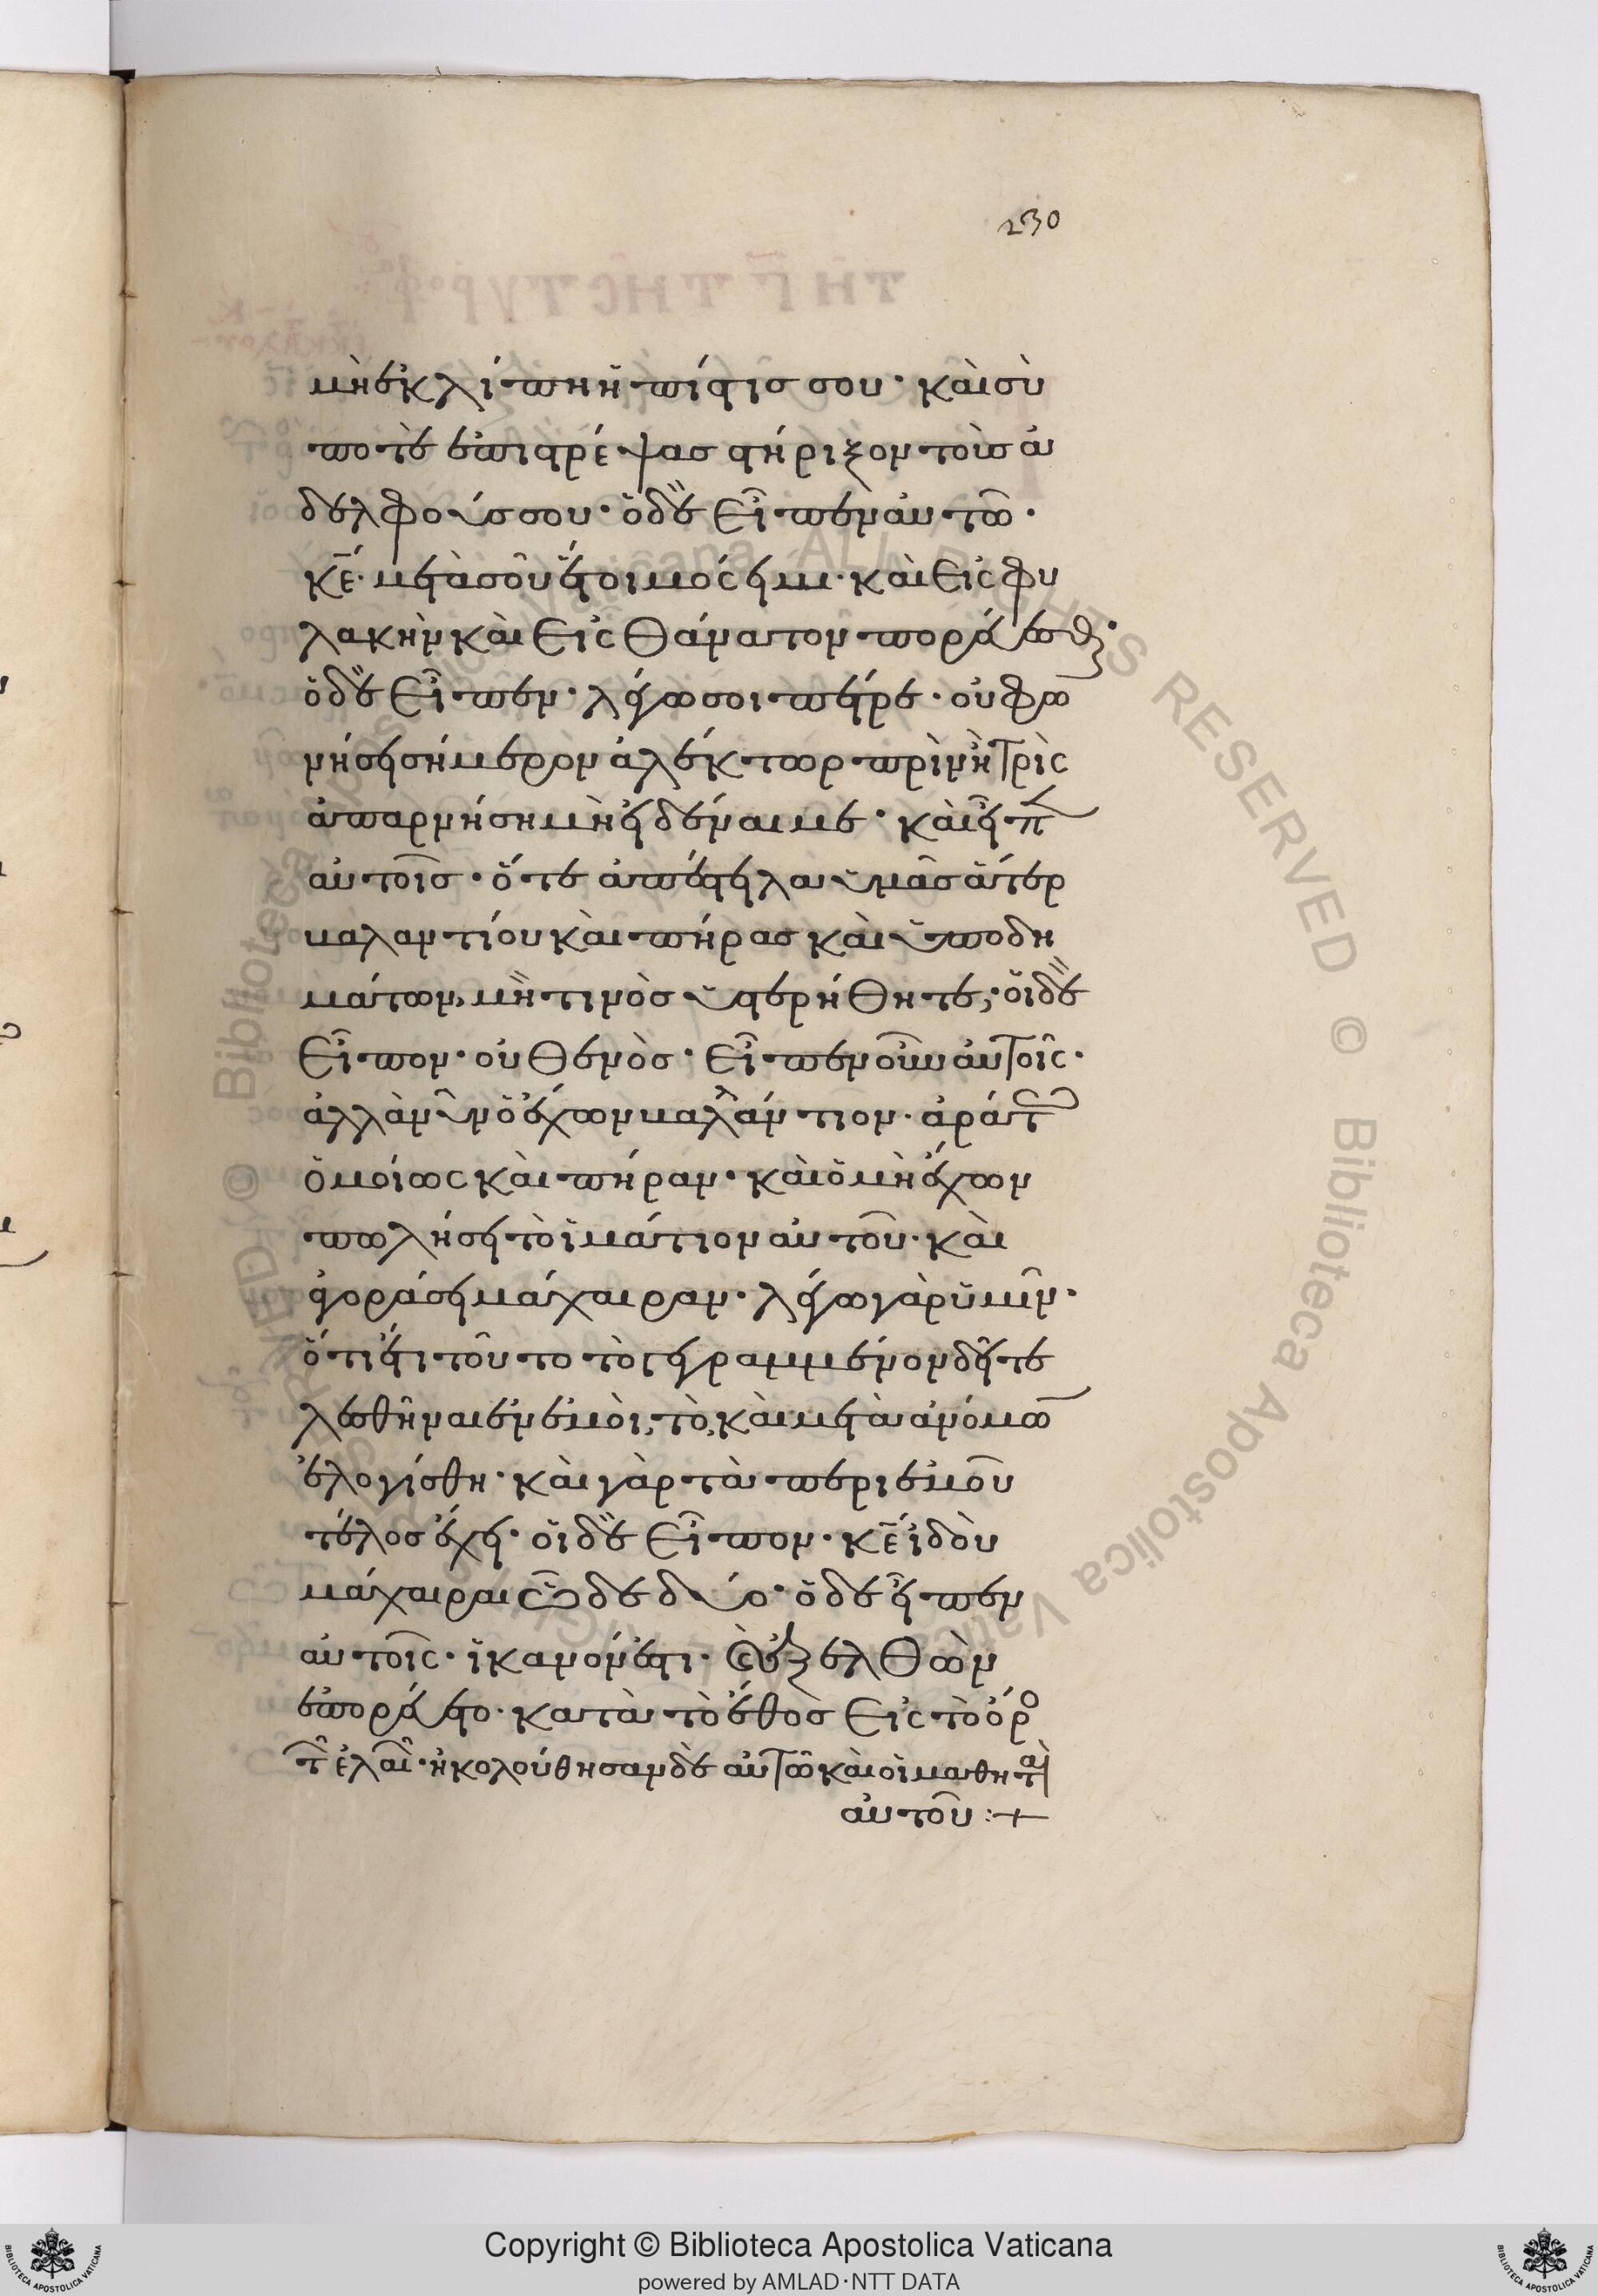 230
μὴ ἐκλίπη ἡ πίστις σου· καὶ σὺ
ποτὲ ἐπιστρέψας στήριξον τοὺς ἀ
δελφούς σου· ὁ δὲ εἶπεν αὐτῶ·
κ̅ε̅· μετὰ σοῦ ἕτοιμός εἰμι· καὶ εἰς φυ
λακὴν καὶ εἰς θάνατον πορεύεσθαι·
ὁ δὲ εἶπεν· λέγω σοι πέτρε· οὐ φω
νήσει σήμερον ἀλέκτωρ πρὶν ἢ τρὶς
ἀπαρνήση μὴ εἰδέναι με· καὶ εἶπ
αὐτοῖς· ὅτε ἀπέστειλα ὑμᾶς ἄτερ
βαλαντίου καὶ πήρας καὶ ὑποδη
μάτων, μή τινὸς ὑστερήθητε; οἱ δὲ
εἶπον· οὐθενὸς· εἶπεν οὖν αὐτοῖς·
ἀλλὰ νῦν ὁ ἔχων βαλλάντιον· ἀράτ
ὁμοίως καὶ πήραν· καὶ ὁ μὴ ἔχων
πωλήσει τὸ ἱμάτιον αὐτοῦ· καὶ
ἀγοράσει μάχαιραν· λέγω γὰρ ὑμῖν·
ὅτι ἔτι τοῦτο τὸ γεγραμμένον δεῖ τε
λεσθῆναι ἐν ἐμοὶ, τὸ, καὶ μετὰ ἀνόμω
ἐλογίσθη· καὶ γὰρ τὰ περὶ ἐμοῦ
τέλος ἔχει· οἱ δὲ εἶπον· κ̅ε̅ ἰδοὺ
μάχαιραι ὧδε δύο· ὁ δὲ εἶπεν
αὐτοῖς· ἱκανόν ἐστι· καὶ ἐξελθὼν
ἐπορεύετο· κατὰ τὸ ἔθος εἰς τὸ ὄρο
τῶν ἐλαιῶν· ἠκολούθησαν δὲ αὐτῶ καὶ οἱ μαθηταὶ
αὐτοῦ :+
Copyright © Biblioteca Apostolica Vaticana
powered by AMLAD·NTT DATA